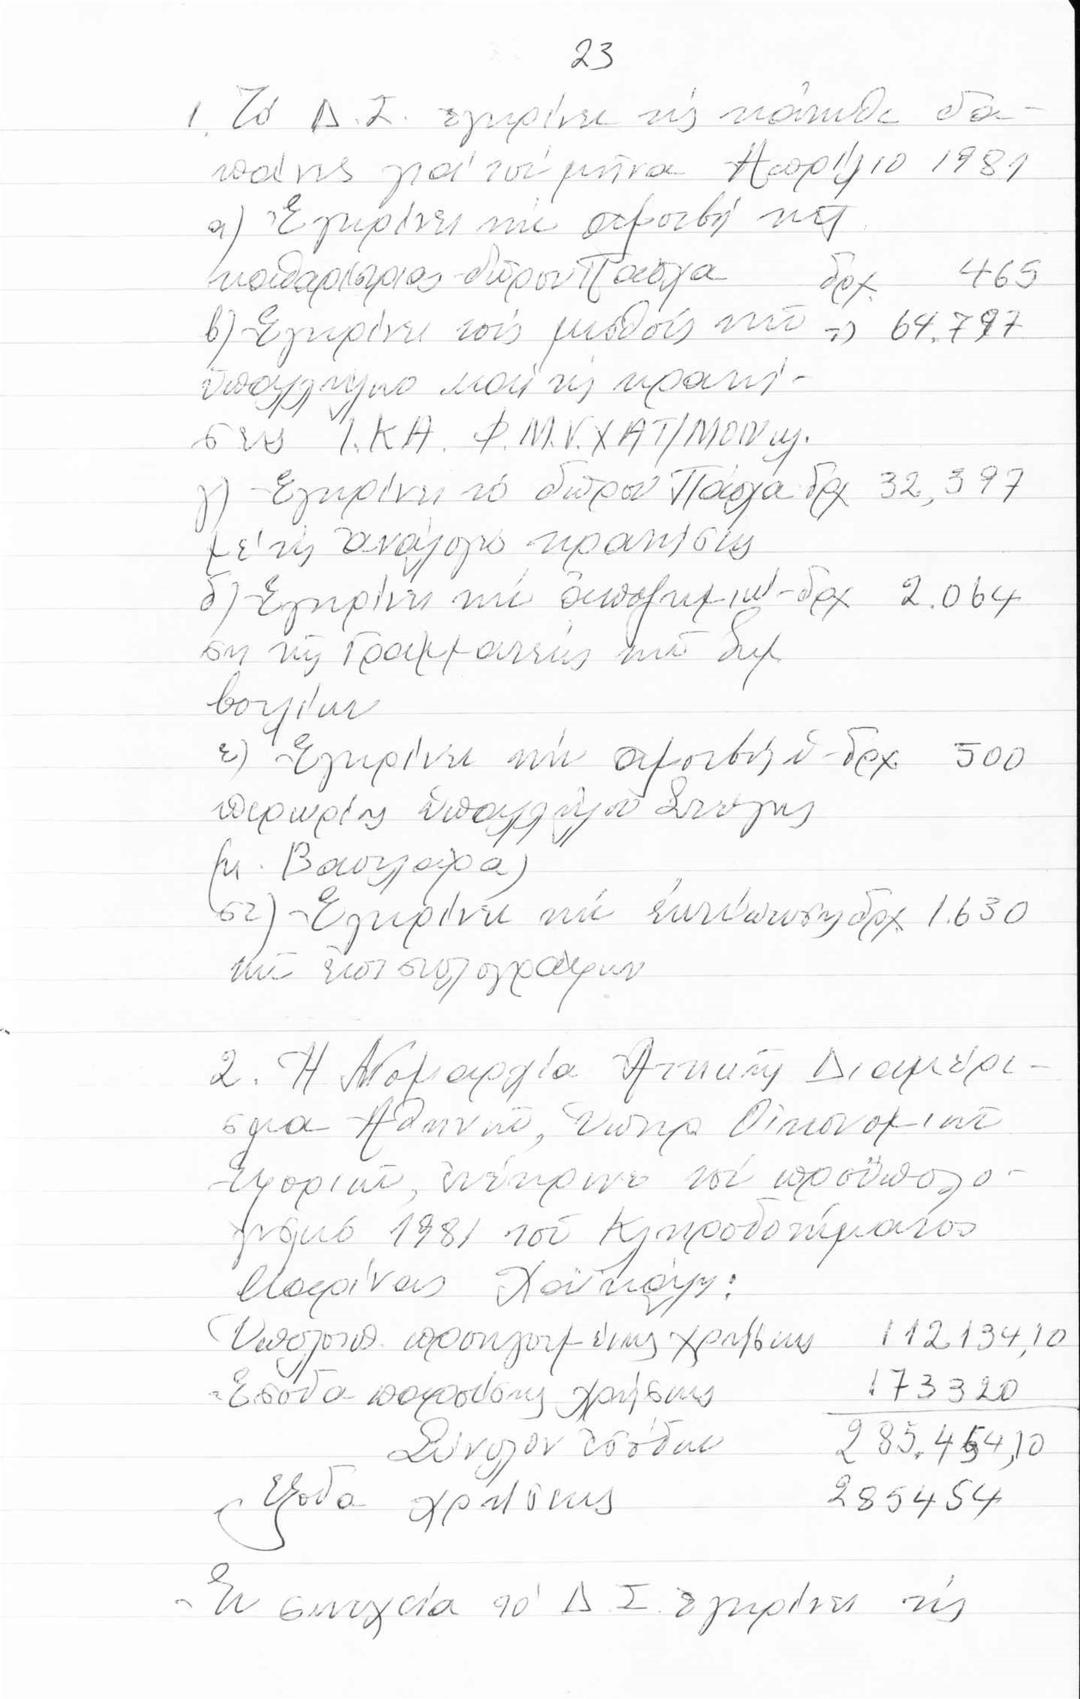 23
1. Τό Δ.Σ. ἐγκρίνει τίς κάτωθι δα-
πάνες γιά τόν μῆνα Ἀπρίλιο 1981
α) Ἐγκρίνει τήν ἀμοιβή τῆς
καθαρίστριας δῶρον Πάσχα δρχ. 465
β) Ἐγκρίνει τούς μισθούς τῶν 64.797
ὑπαλλήλων καί τίς κρατή-
σεις Ι.Κ.Α. Φ.Μ.Υ. ΧΑΡΤ/ΜΟΝ κλ.
γ) Ἐγκρίνει τό δῶρον Πάσχα δρχ 32,397
μέ τίς ἀνάλογες κρατήσεις
δ) Ἐγκρίνει τήν ἀποζημίω- δρχ 2.064
ση τῆς Γραμματέως τῶν Συμ
βουλίων
ε) Ἐγκρίνει τήν ἀμοιβή ὑ- δρχ. 500
περωρίες ὑπαλλήλου Στέγης
(κ. Βασιλάρα)
στ) Ἐγκρίνει τήν ἐκτύπωσην δρχ. 1.630
τῶν ἐπιστολογράφων
2. Ἡ Νομαρχία Ἀττικῆς Διαμέρι-
σμα Ἀθηνῶν, Οἰκονομικῶν
Ἐφοριῶν, ἐνέκρινε τόν προϋπολο-
γισμό 1981 τοῦ Κληροδοτήματος
Μαρίνας Χαϊκάλη:
Ὑπόλοιπ. προηγουμένης χρήσεως 112134,10
Ἔσοδα παρούσης χρήσεως 173320
Σύνολον ἐσόδων 285.454,10
Ἔξοδα χρήσεως 285454
Ἐν συνεχεία τό Δ.Σ. ἐγκρίνει τίς